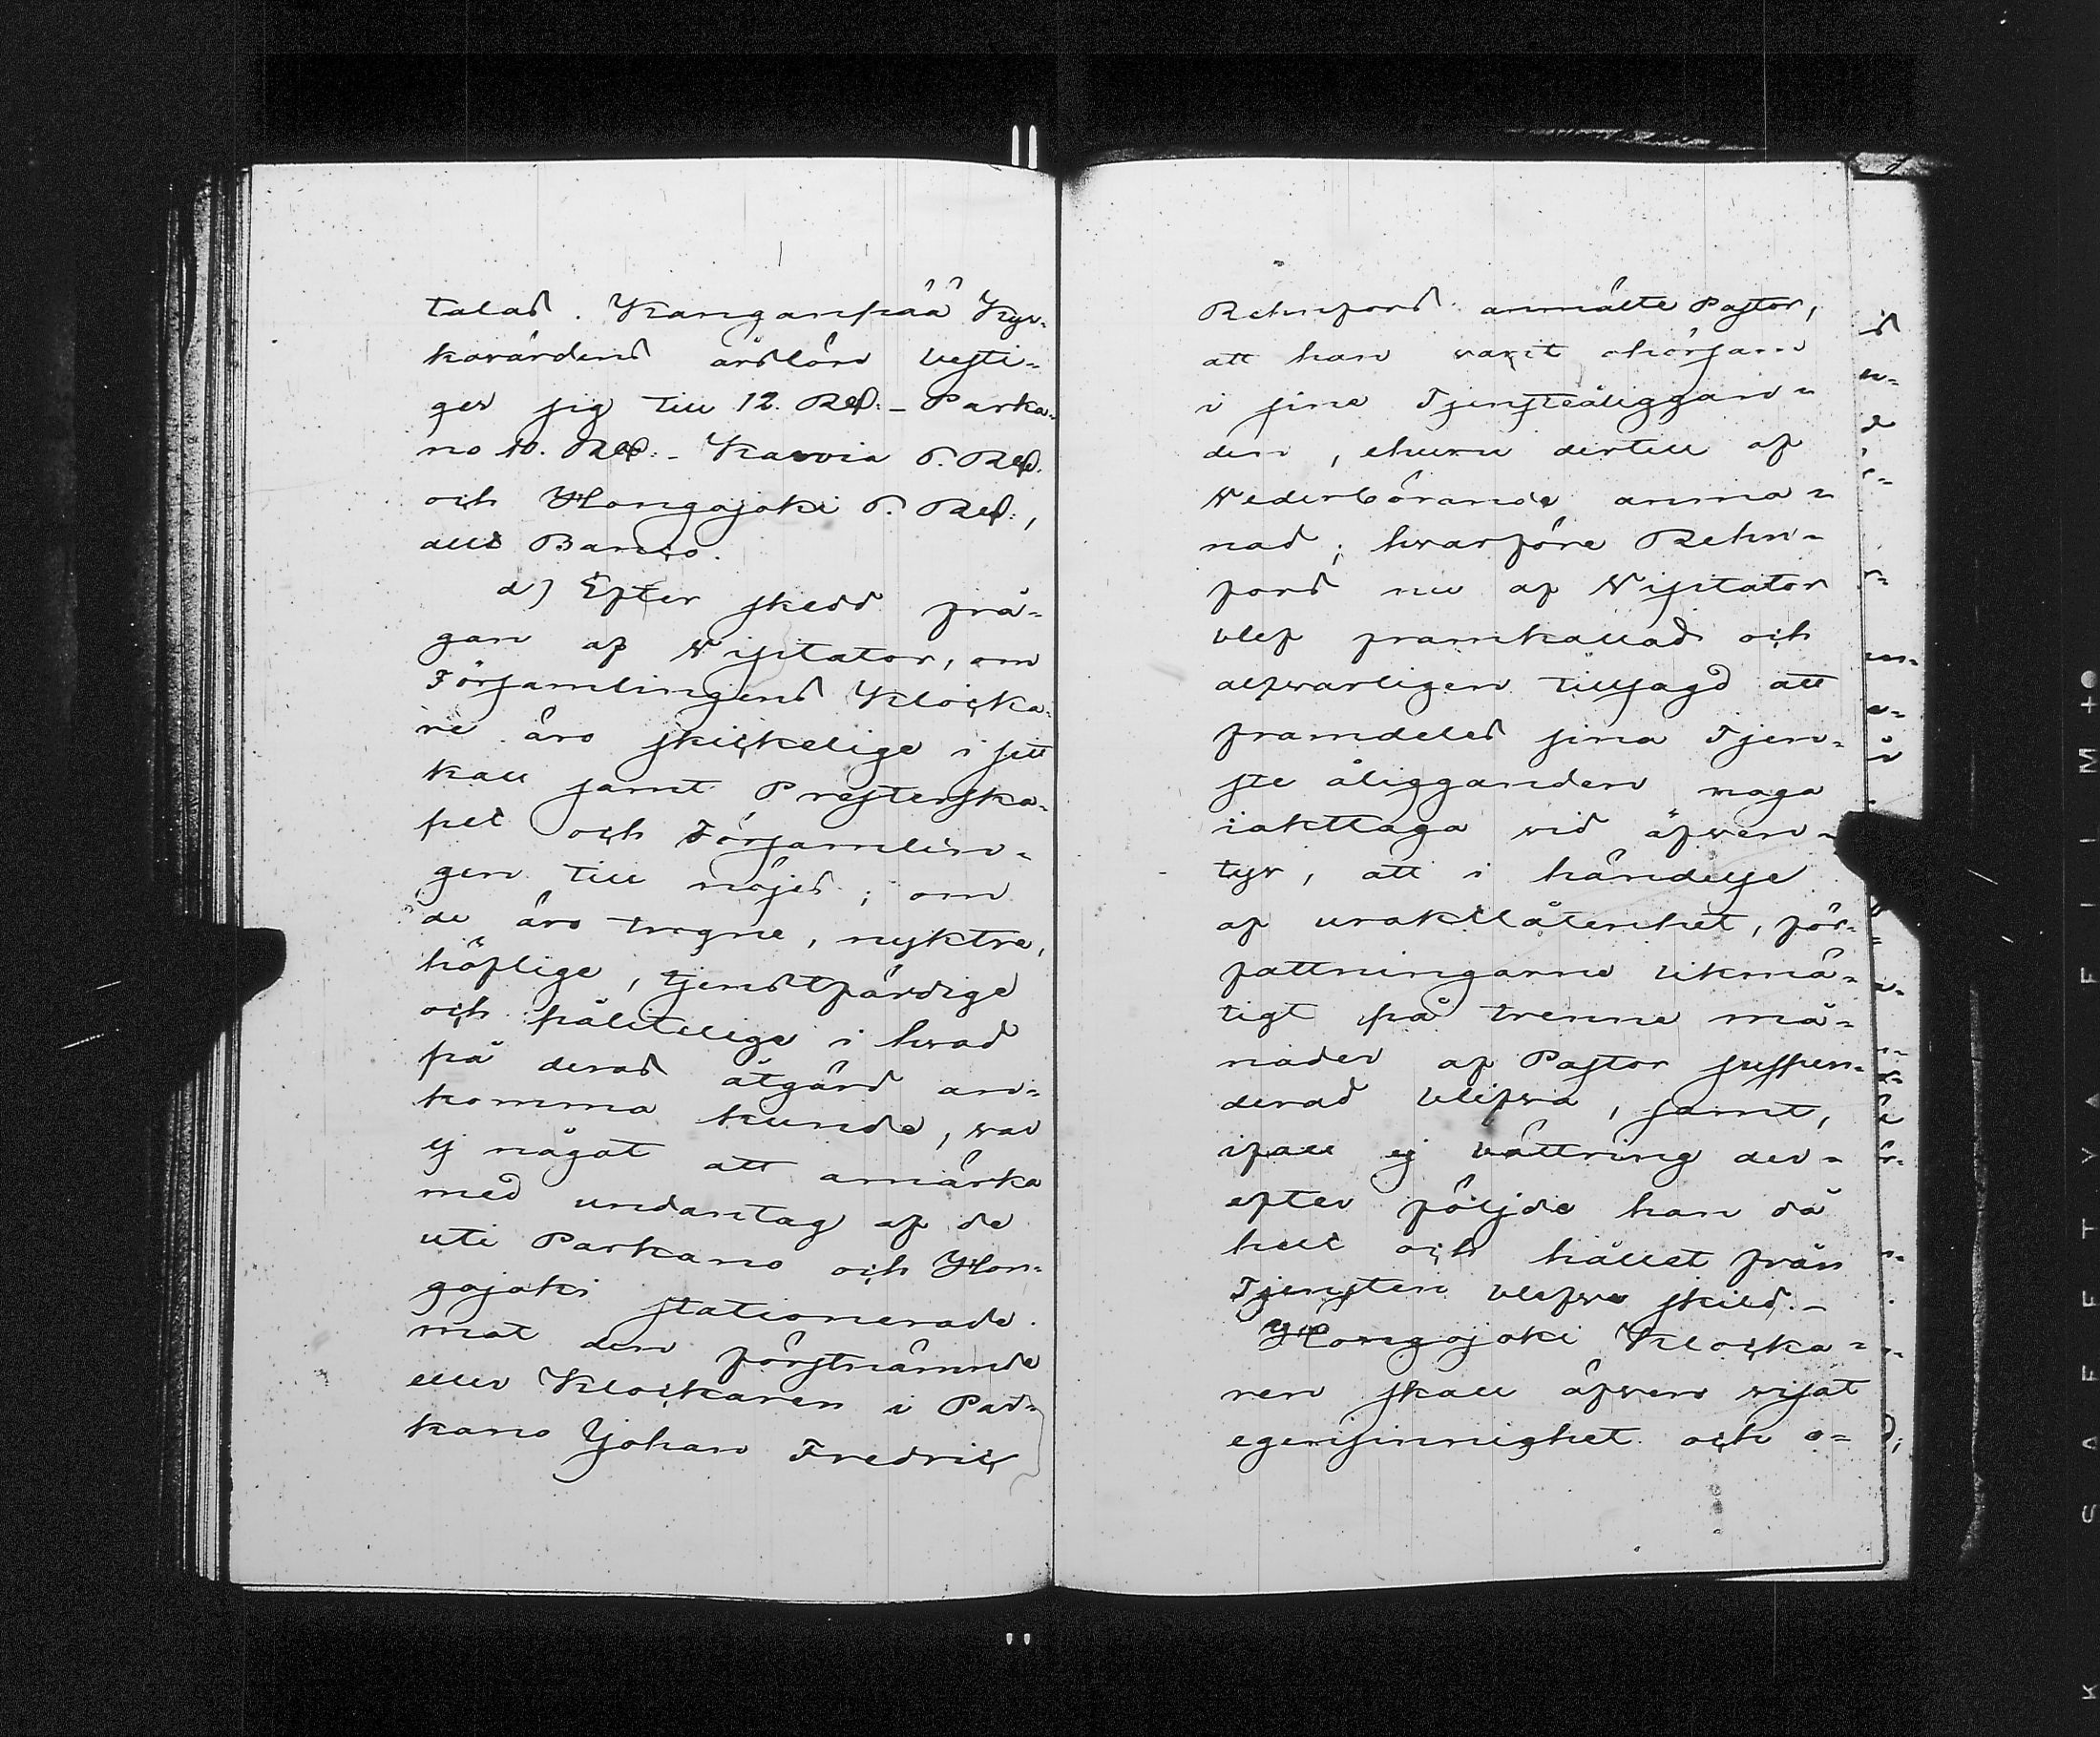 talas. Kanganpää Kyr-
kovärdens årslön besti-
ger sig till 12. Rd: - Parka-
no 10. Rd: - Karvia 6. Rd.
och Hongojoki 6. Rd:,
allt Banco.
d) Efter skedd frå-
gan af Visitator, om
Församlingens Klocka-
re äro skickelige i sitt
kall samt Presterska-
pet och Församlin-
gen till nöjes; om
de äro trogne, nyktre,
höflige, tjenstfärdige
och pålitelige i hvad
på deras åtgärd an-
komma kunde, var
ej något att anmärka
med undantag af de
uti Parkano och Hon-
gojoki stationerade.
mot den förstnämnde
eller Klockaren i Par-
kano Johan Fredric
Rehnfors anmälte Pastor,
att han varit ohörsam
i sine Tjensteåliggan-
den, ehuru dertill af
Vederbörande anma-
nad; hvarföre Rehn-
fors nu af Visitator
blef framkallad och
alfvarligen tillsagd att
framdeles sina Tjen-
ste åligganden noga
iakttaga vid äfven-
tyr, att i händelse
af uraktlåtenhet, för-
fattningarne likmä-
tigt på trenne må-
nader af Pastor suspen-
derad blifva, samt,
ifall ej bättring der-
efter följde han då
helt och hållet från
Tjensten blefve skild. -
Hongojoki Klocka-
ren skall äfven visat
egensinnighet och o-